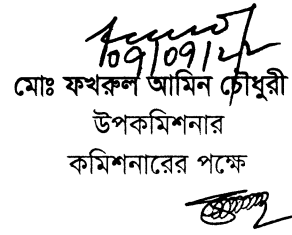 09/09/22
মোঃ ফখরুল আমিন চৌধুরী
উপকমিশনার
কমিশনারের পক্ষে